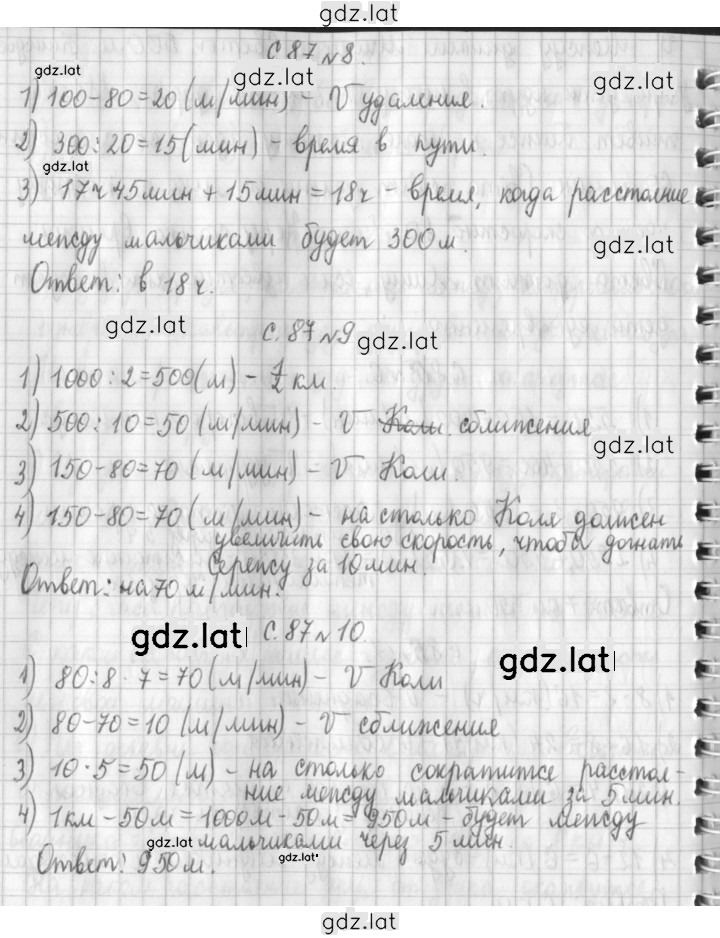 gdz.lat
с. 87 №8.
gdz.lat
gdz.lat
gdz.lat
1) 100-80=20 (м/мин) - V удаления.
2) 300:20=15 (мин) - время в пути.
gdz.lat
3) 17ч 45мин + 15мин = 18ч - время, когда расстояние
между мальчиками будет 300м.
gdz.lat
Ответ: в 18ч.
gdz.lat
с. 87 №9
gdz.lat
1) 1000:2=500(м) - 1/2 км.
2) 500:10=50 (м/мин) - V Коли. сближения
gdz.lat
3) 150-80=70 (м/мин) - V Коли.
4) 150-80=70 (м/мин) - на столько Коля должен
увеличить свою скорость, чтобы догнать
Серёжу за 10мин.
Ответ: на 70 м/мин.
gdz.lat
с. 87 №10.
gdz.lat
1) 80:8·7=70 (м/мин) - V Коли
2) 80-70=10 (м/мин) - V сближения
3) 10·5=50 (м) - на столько сократится расстоя-
ние между мальчиками за 5мин.
4) 1км - 50м = 1000м - 50м = 950м - будет между
мальчиками через 5 мин.
gdz.lat
gdz.lat
Ответ: 950м.
gdz.lat